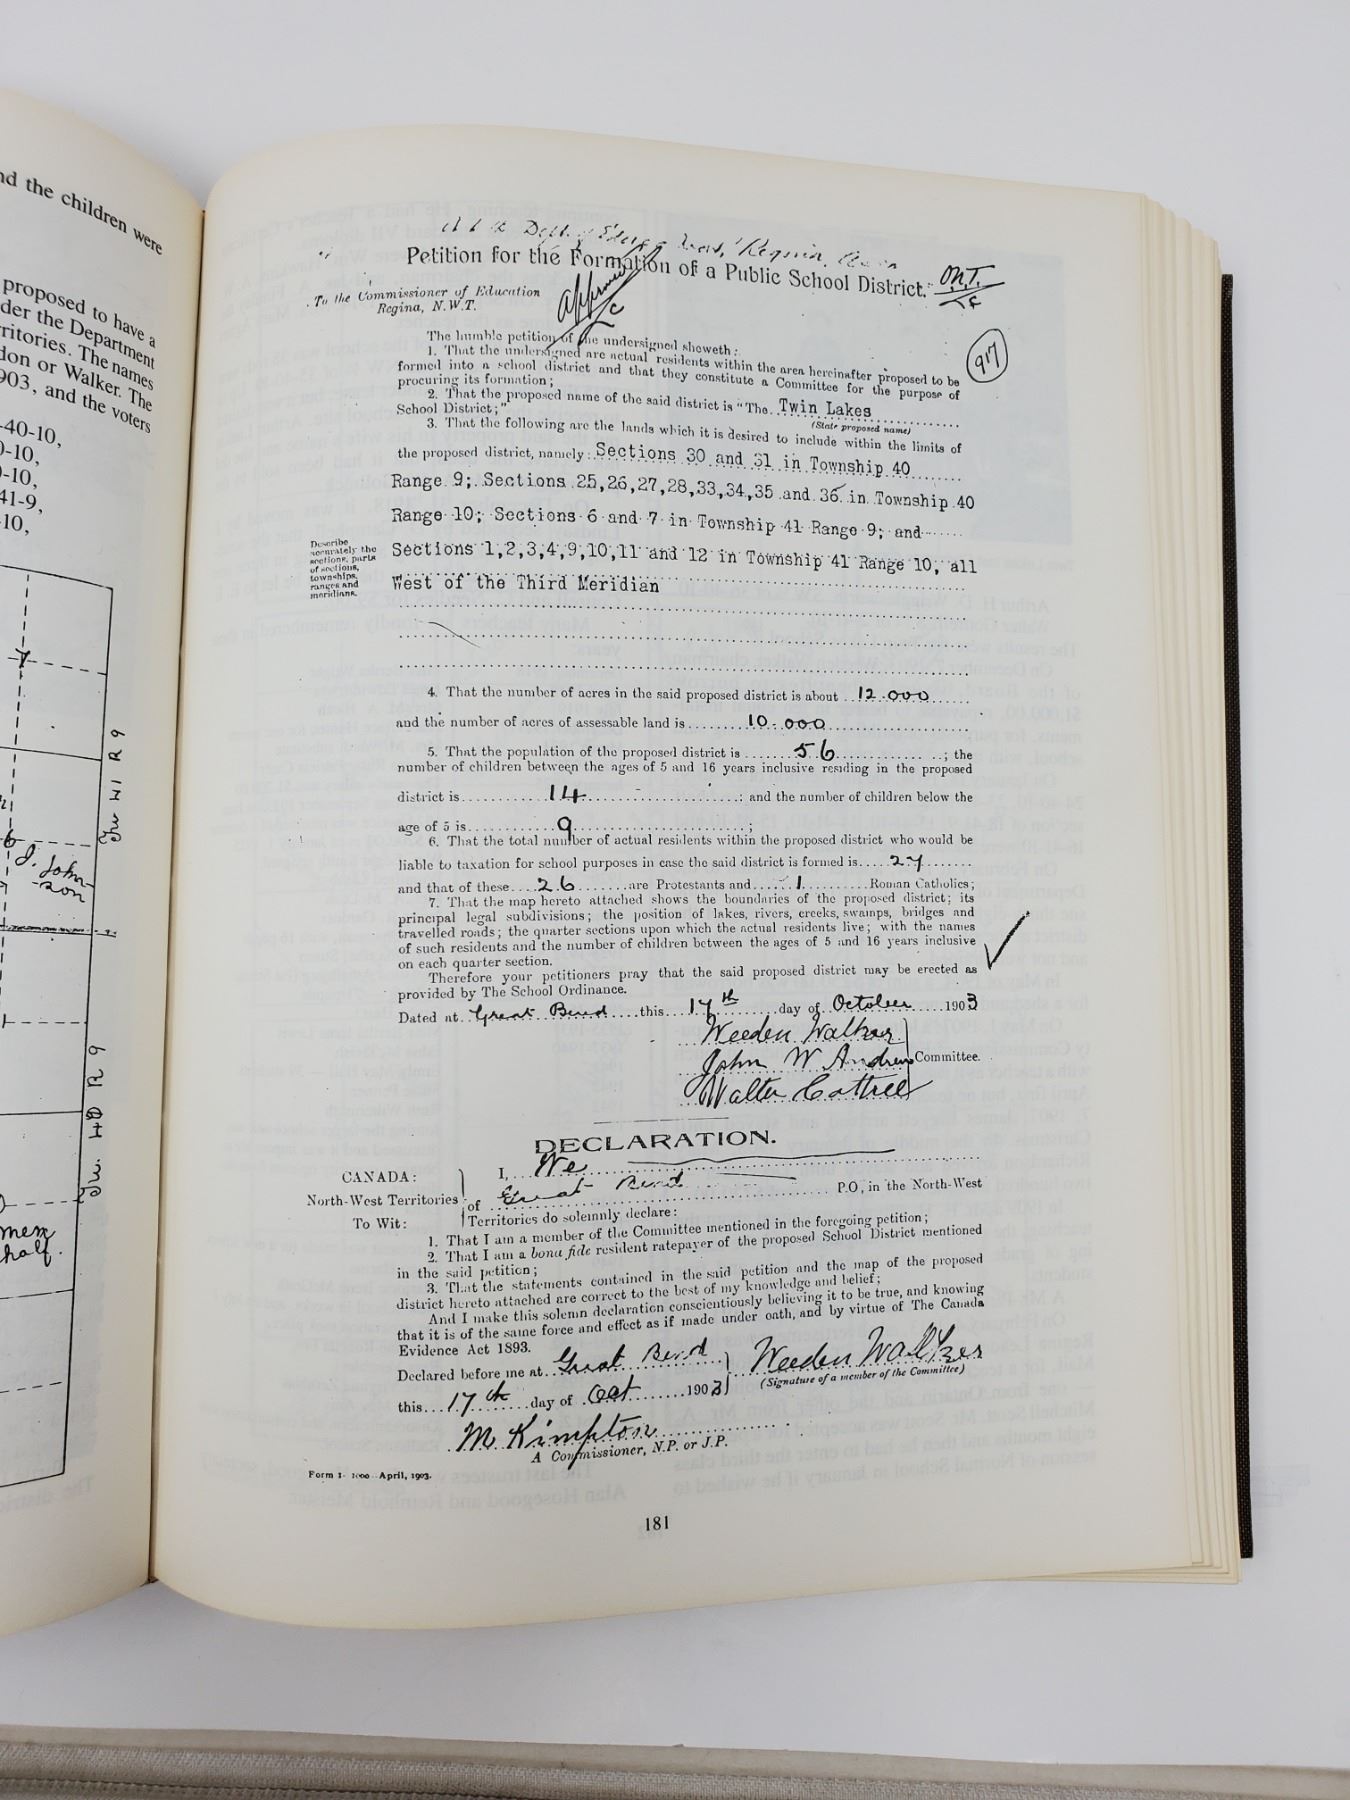 nd the children were
proposed to have a
der the Department
rritories. The names
don or Walker. The
903, and the voters
-40-10,
0-10,
0-10,
41-9,
-10,
Tw 41 R 9
J. John-
-son
Tw. 40 R 9
half.
Petition for the Formation of a Public School District.
To the Commissioner of Education
Regina, N.W.T.
approved
917
The humble petition of the undersigned sheweth:
1. That the undersigned are actual residents within the area hereinafter proposed to be
formed into a school district and that they constitute a Committee for the purpose of
procuring its formation;
2. That the proposed name of the said district is "The Twin Lakes
School District;"
(State proposed name)
3. That the following are the lands which it is desired to include within the limits of
the proposed district, namely: Sections 30 and 31 in Township 40
Range 9; Sections 25,26,27,28,33,34,35 and 36 in Township 40
Range 10; Sections 6 and 7 in Township 41 Range 9; and
Describe
accurately the
sections, parts
of sections,
townships,
ranges and
meridians.
Sections 1,2,3,4,9,10,11 and 12 in Township 41 Range 10, all
West of the Third Meridian
4. That the number of acres in the said proposed district is about 12.000
and the number of acres of assessable land is 10.000
5. That the population of the proposed district is 56; the
number of children between the ages of 5 and 16 years inclusive residing in the proposed
district is 14; and the number of children below the
age of 5 is 9;
6. That the total number of actual residents within the proposed district who would be
liable to taxation for school purposes in case the said district is formed is 27
and that of these 26 are Protestants and 1 Roman Catholics;
7. That the map hereto attached shows the boundaries of the proposed district; its
principal legal subdivisions; the position of lakes, rivers, creeks, swamps, bridges and
travelled roads; the quarter sections upon which the actual residents live; with the names
of such residents and the number of children between the ages of 5 and 16 years inclusive
on each quarter section.
Therefore your petitioners pray that the said proposed district may be erected as
provided by The School Ordinance.
Dated at Great Bend this 17th day of October 1903
Weeden Walker
John W Andrew
Committee.
Walter Cottrell
DECLARATION.
CANADA:
North-West Territories
To Wit:
I, We
of Great Bend P.O, in the North-West
Territories do solemnly declare:
1. That I am a member of the Committee mentioned in the foregoing petition;
2. That I am a bona fide resident ratepayer of the proposed School District mentioned
in the said petition;
3. That the statements contained in the said petition and the map of the proposed
district hereto attached are correct to the best of my knowledge and belief;
And I make this solemn declaration conscientiously believing it to be true, and knowing
that it is of the same force and effect as if made under oath, and by virtue of The Canada
Evidence Act 1893.
Declared before me at Great Bend
Weeden Walker
(Signature of a member of the Committee)
this 17th day of Oct 1903
M Kimpton
A Commissioner, N.P. or J.P.
Form 1- 1000 - April, 1903.
181